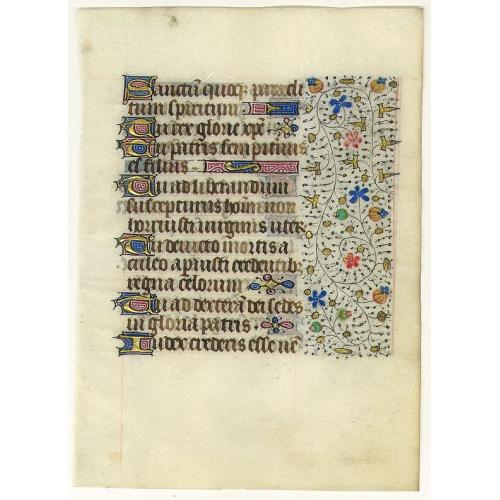 Sanctū quoq; paracli
tum spiritum
Tu rex glorie xpē
Tu patris sempiternus
es filius
Tu ad liberandum
suscepturus hoīem non
horruisti virginis uter
Tu devicto mortis a
culeo aperuisti credentibz
regna celorum
Tu ad dexterā dei sedes
in gloria patris
Iudex crederis esse uē